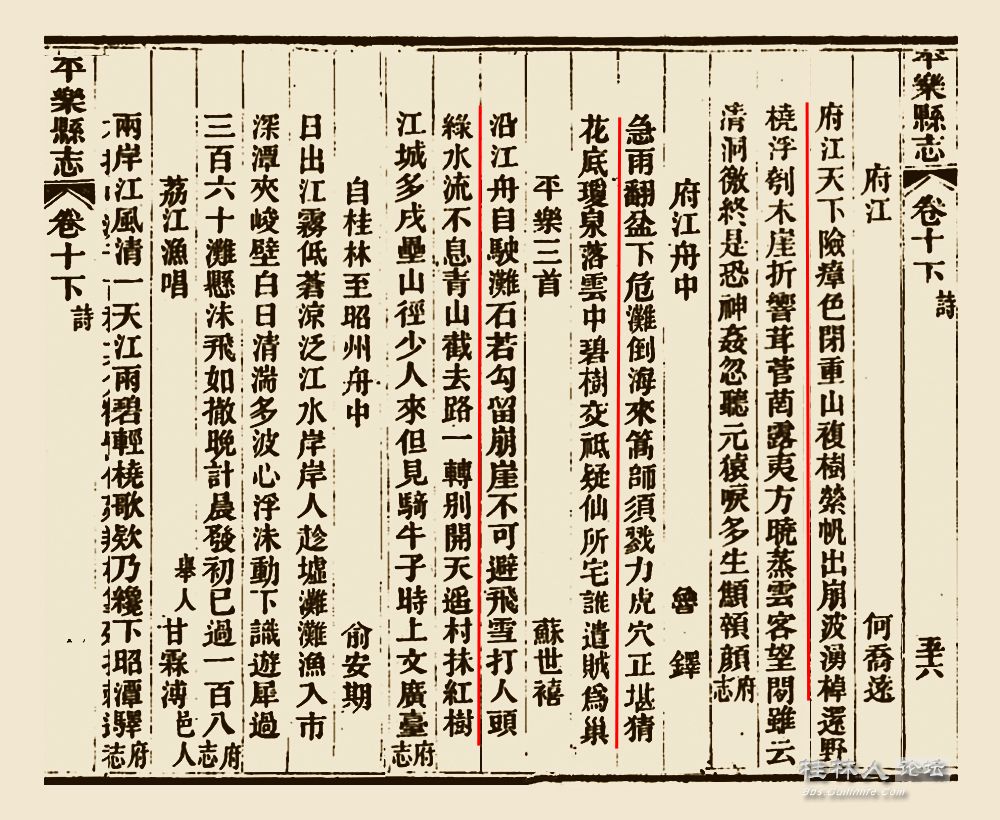 平樂縣志 卷十下 詩 五十六
府江 何喬遠
府江天下險瘴色閉重山複樹縈帆出崩波湧棹還野
橈浮刳木崖折響茸菅菌露夷方曉蒸雲客望閒雖云
清洞徹終是恐神姦忽聽元猿唳多生顦顇顔府志
府江舟中 魯鐸
急雨翻盆下危灘倒海來篙師須戮力虎穴正堪猜
花底瓊泉落雲中碧樹交祗疑仙所宅誰遣賊爲巢
平樂三首 蘇世禧
沿江舟自駛灘石若勾留崩崖不可避飛雪打人頭
綠水流不息青山截去路一轉別開天遙村抹紅樹
江城多戍壘山徑少人來但見騎牛子時上文廣臺府志
自桂林至昭州舟中 俞安期
日出江霧低蒼涼泛江水岸岸人趁墟灘灘漁入市
深潭夾峻壁白日清湍多波心浮沫動下識遊犀過
三百六十灘懸沫飛如撒晚計晨發初已過一百八府志
荔江漁唱 舉人甘霖溥邑人
兩岸江風清一天江雨碧輕橈歌欸乃纔下昭潭驛府志
平樂縣志 卷十下 詩
桂林人论坛
bbs.Guilinlife.com